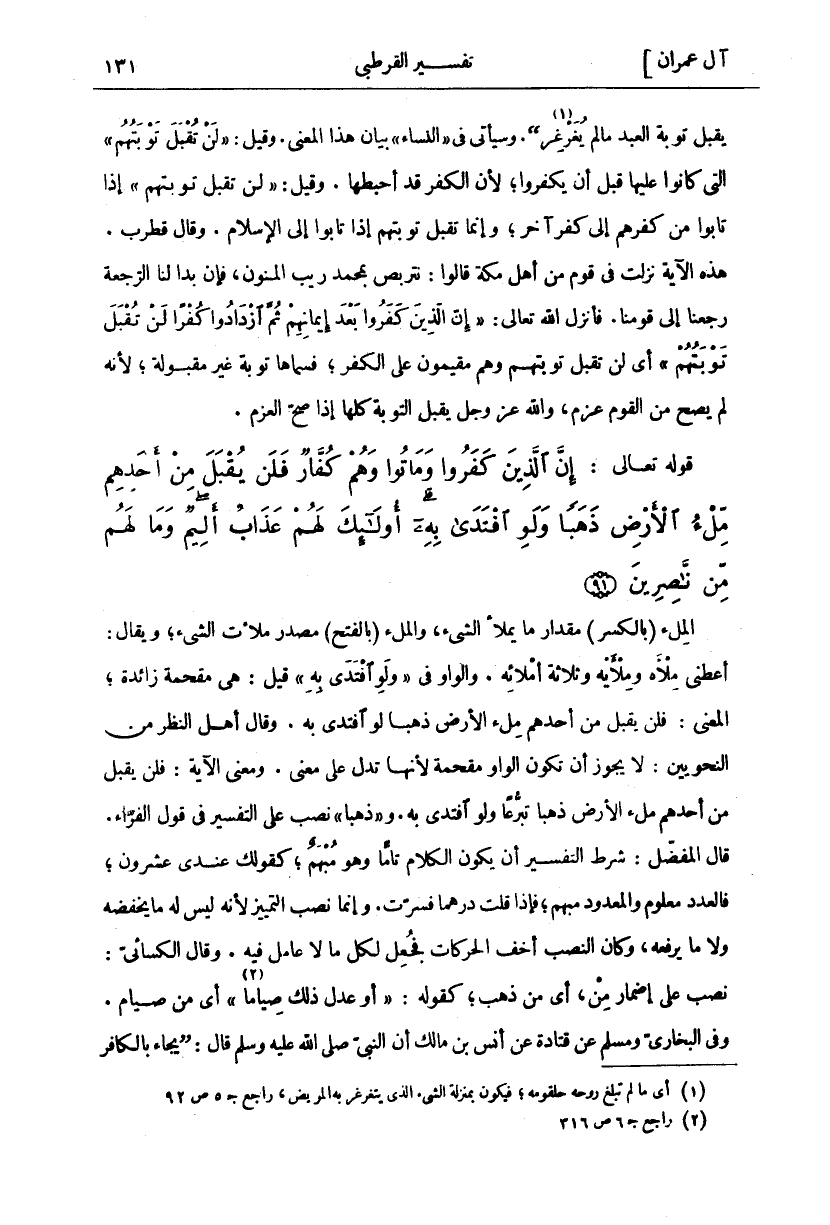 آل عمران ] تفسير القرطبى ١٣١
يقبل توبة العبد مالم يُغَرْغِر". (١) وسيأتى فى «النساء» بيان هذا المعنى. وقيل: «لَنْ تُقْبَلَ تَوْبَتُهُمْ»
التى كانوا عليها قبل أن يكفروا؛ لأن الكفر قد أحبطها . وقيل: « لن تقبل توبتهم » إذا
تابوا من كفرهم إلى كفر آخر؛ وإنما تقبل توبتهم إذا تابوا إلى الإسلام . وقال قطرب .
هذه الآية نزلت فى قوم من أهل مكة قالوا : نتربص بمحمد ريب المنون، فإن بدا لنا الرجعة
رجعنا إلى قومنا. فأنزل الله تعالى: « إِنّ الَّذِينَ كَفَرُوا بَعْدَ إِيمَانِهِمْ ثُمَّ ٱزْدَادُوا كُفْرًا لَنْ تُقْبَلَ
تَوْبَتُهُمْ » أى لن تقبل توبتهم وهم مقيمون على الكفر ؛ فسماها توبة غير مقبولة ؛ لأنه
لم يصح من القوم عزم، والله عز وجل يقبل التوبة كلها إذا صحّ العزم .
قوله تعالى : إِنَّ ٱلَّذِينَ كَفَرُوا وَمَاتُوا وَهُمْ كُفَّارٌ فَلَن يُقْبَلَ مِنْ أَحَدِهِم
مِّلْءُ ٱلْأَرْضِ ذَهَبًا وَلَوِ ٱفْتَدَىٰ بِهِۦٓ أُولَـٰٓئِكَ لَهُمْ عَذَابٌ أَلِيمٌ وَمَا لَهُم
مِّن نَّـٰصِرِينَ ٩١
المِلء (بالكسر) مقدار ما يملأ الشىء، والملء (بالفتح) مصدر ملأت الشىء؛ ويقال:
أعطنى مِلْأَه ومِلْأَيْه وثلاثة أمْلائه . والواو فى « ولَوِ ٱفْتَدَى بِهِ » قيل : هى مقحمة زائدة ؛
المعنى : فلن يقبل من أحدهم مِلء الأرض ذهبا لو ٱفتدى به . وقال أهل النظر من
النحويين : لا يجوز أن تكون الواو مقحمة لأنها تدل على معنى . ومعنى الآية : فلن يقبل
من أحدهم ملء الأرض ذهبا تبرُّعًا ولو ٱفتدى به. و«ذهبا» نصب على التفسير فى قول الفرّاء.
قال المفضّل : شرط التفسير أن يكون الكلام تامًّا وهو مُبْهَمٌ ؛ كقولك عندى عشرون ؛
فالعدد معلوم والمعدود مبهم ؛ فإذا قلت درهما فسرت. وإنما نصب التمييز لأنه ليس له ما يخفضه
ولا ما يرفعه، وكان النصب أخف الحركات فجُعِل لكل ما لا عامل فيه . وقال الكسائىّ :
نصب على إضمار مِنْ، أى من ذهب؛ كقوله : « أو عدل ذلك صِياما (٢) » أى من صيام .
وفى البخارىّ ومسلم عن قتادة عن أنس بن مالك أن النبىّ صلى الله عليه وسلم قال : "يجاء بالكافر
(١) أى ما لم تبلغ روحه حلقومه ؛ فيكون بمنزلة الشىء الذى يتغرغر به المريض، راجع جـ ٥ ص ٩٢
(٢) راجع جـ ٦ ص ٣١٦